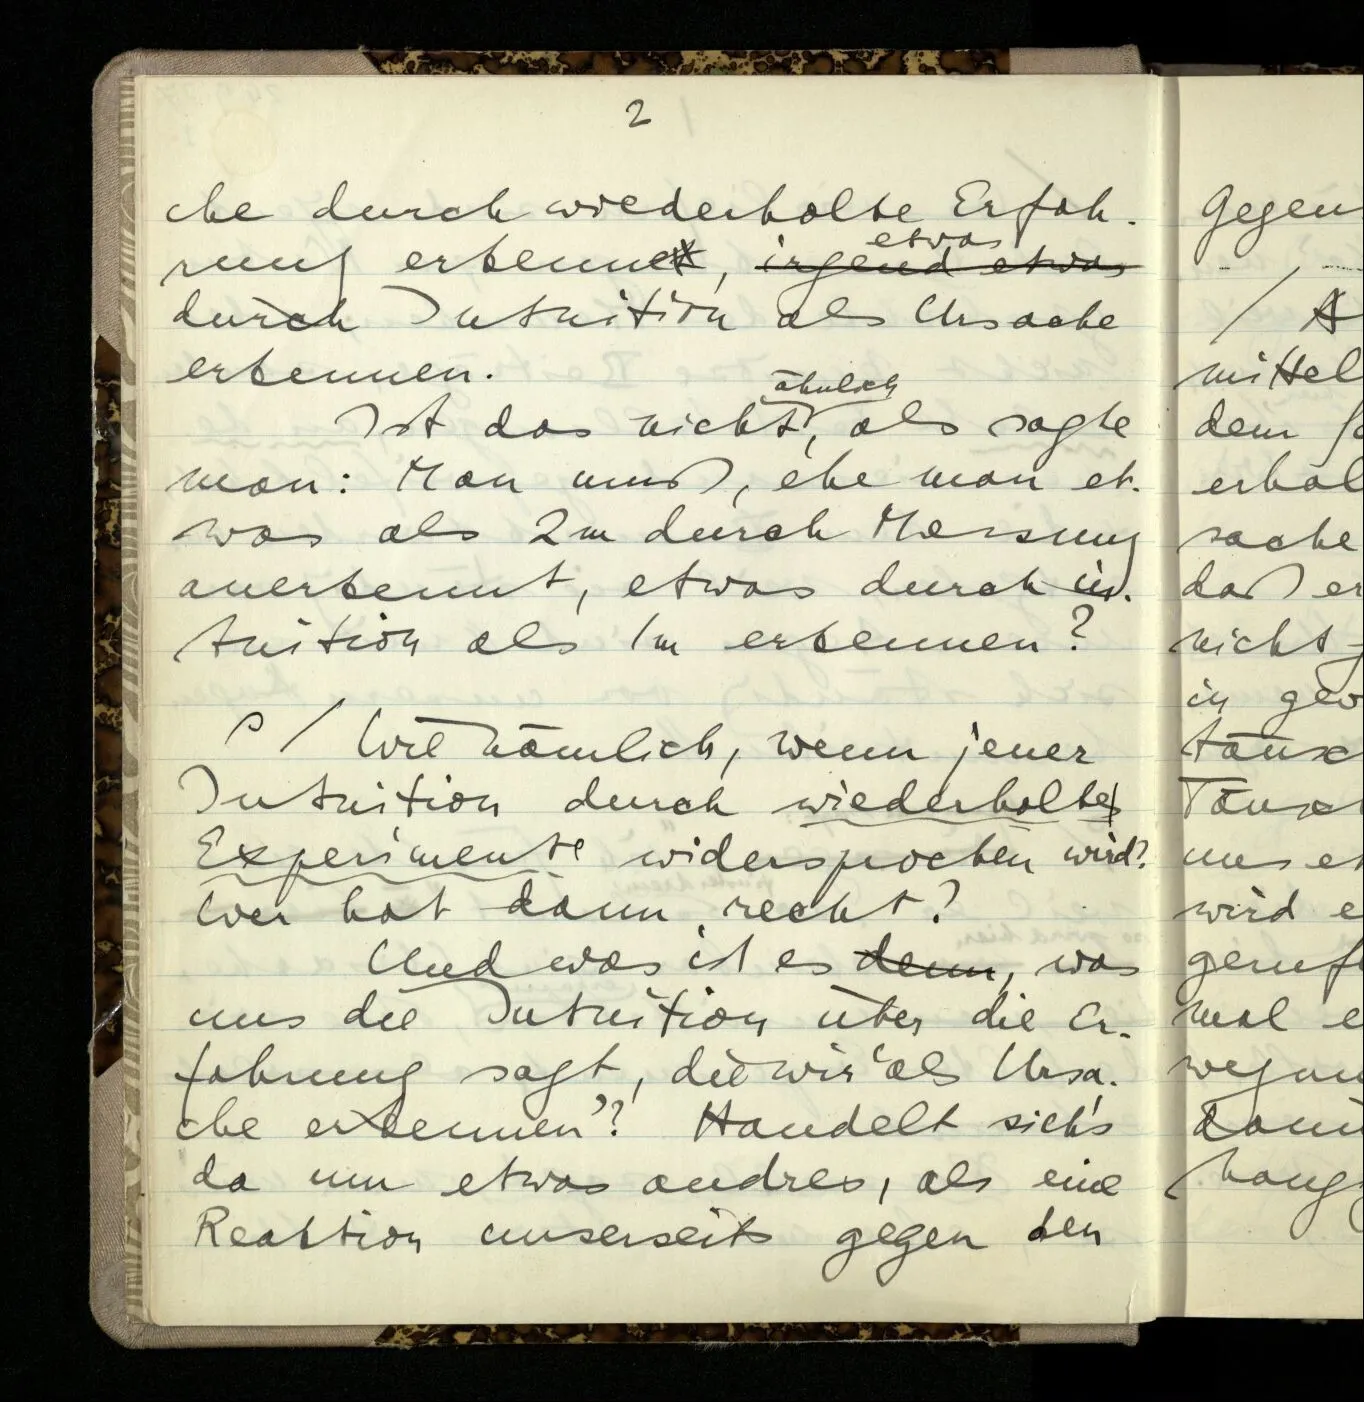 2
che durch wiederholte Erfah-
rung erkennt,
etwas
irgend etwas
durch Intuition als Ursache
erkennen.
ähnlich
Ist das nicht, als sagte
man: Man muß, ehe man et-
was als 2m durch Messung
anerkennt, etwas durch in-
tuition als 1m erkennen?
/ Wie nämlich, wenn jener
Intuition durch wiederholte
Experimente widersprochen wird?
Wer hat dann recht?
Und was ist es denn, was
uns die Intuition über die Er-
fahrung sagt, die wir 'als Ursa-
che erkennen'? Handelt sich's
da um etwas andres, als eine
Reaktion unserseits gegen den
Gegen
/ A
mittel
dem
erhal
sache
daß er
nicht
in gew
täusc
Täusch
uns et
wird e
gerufe
mal e
wegun
dann
hang